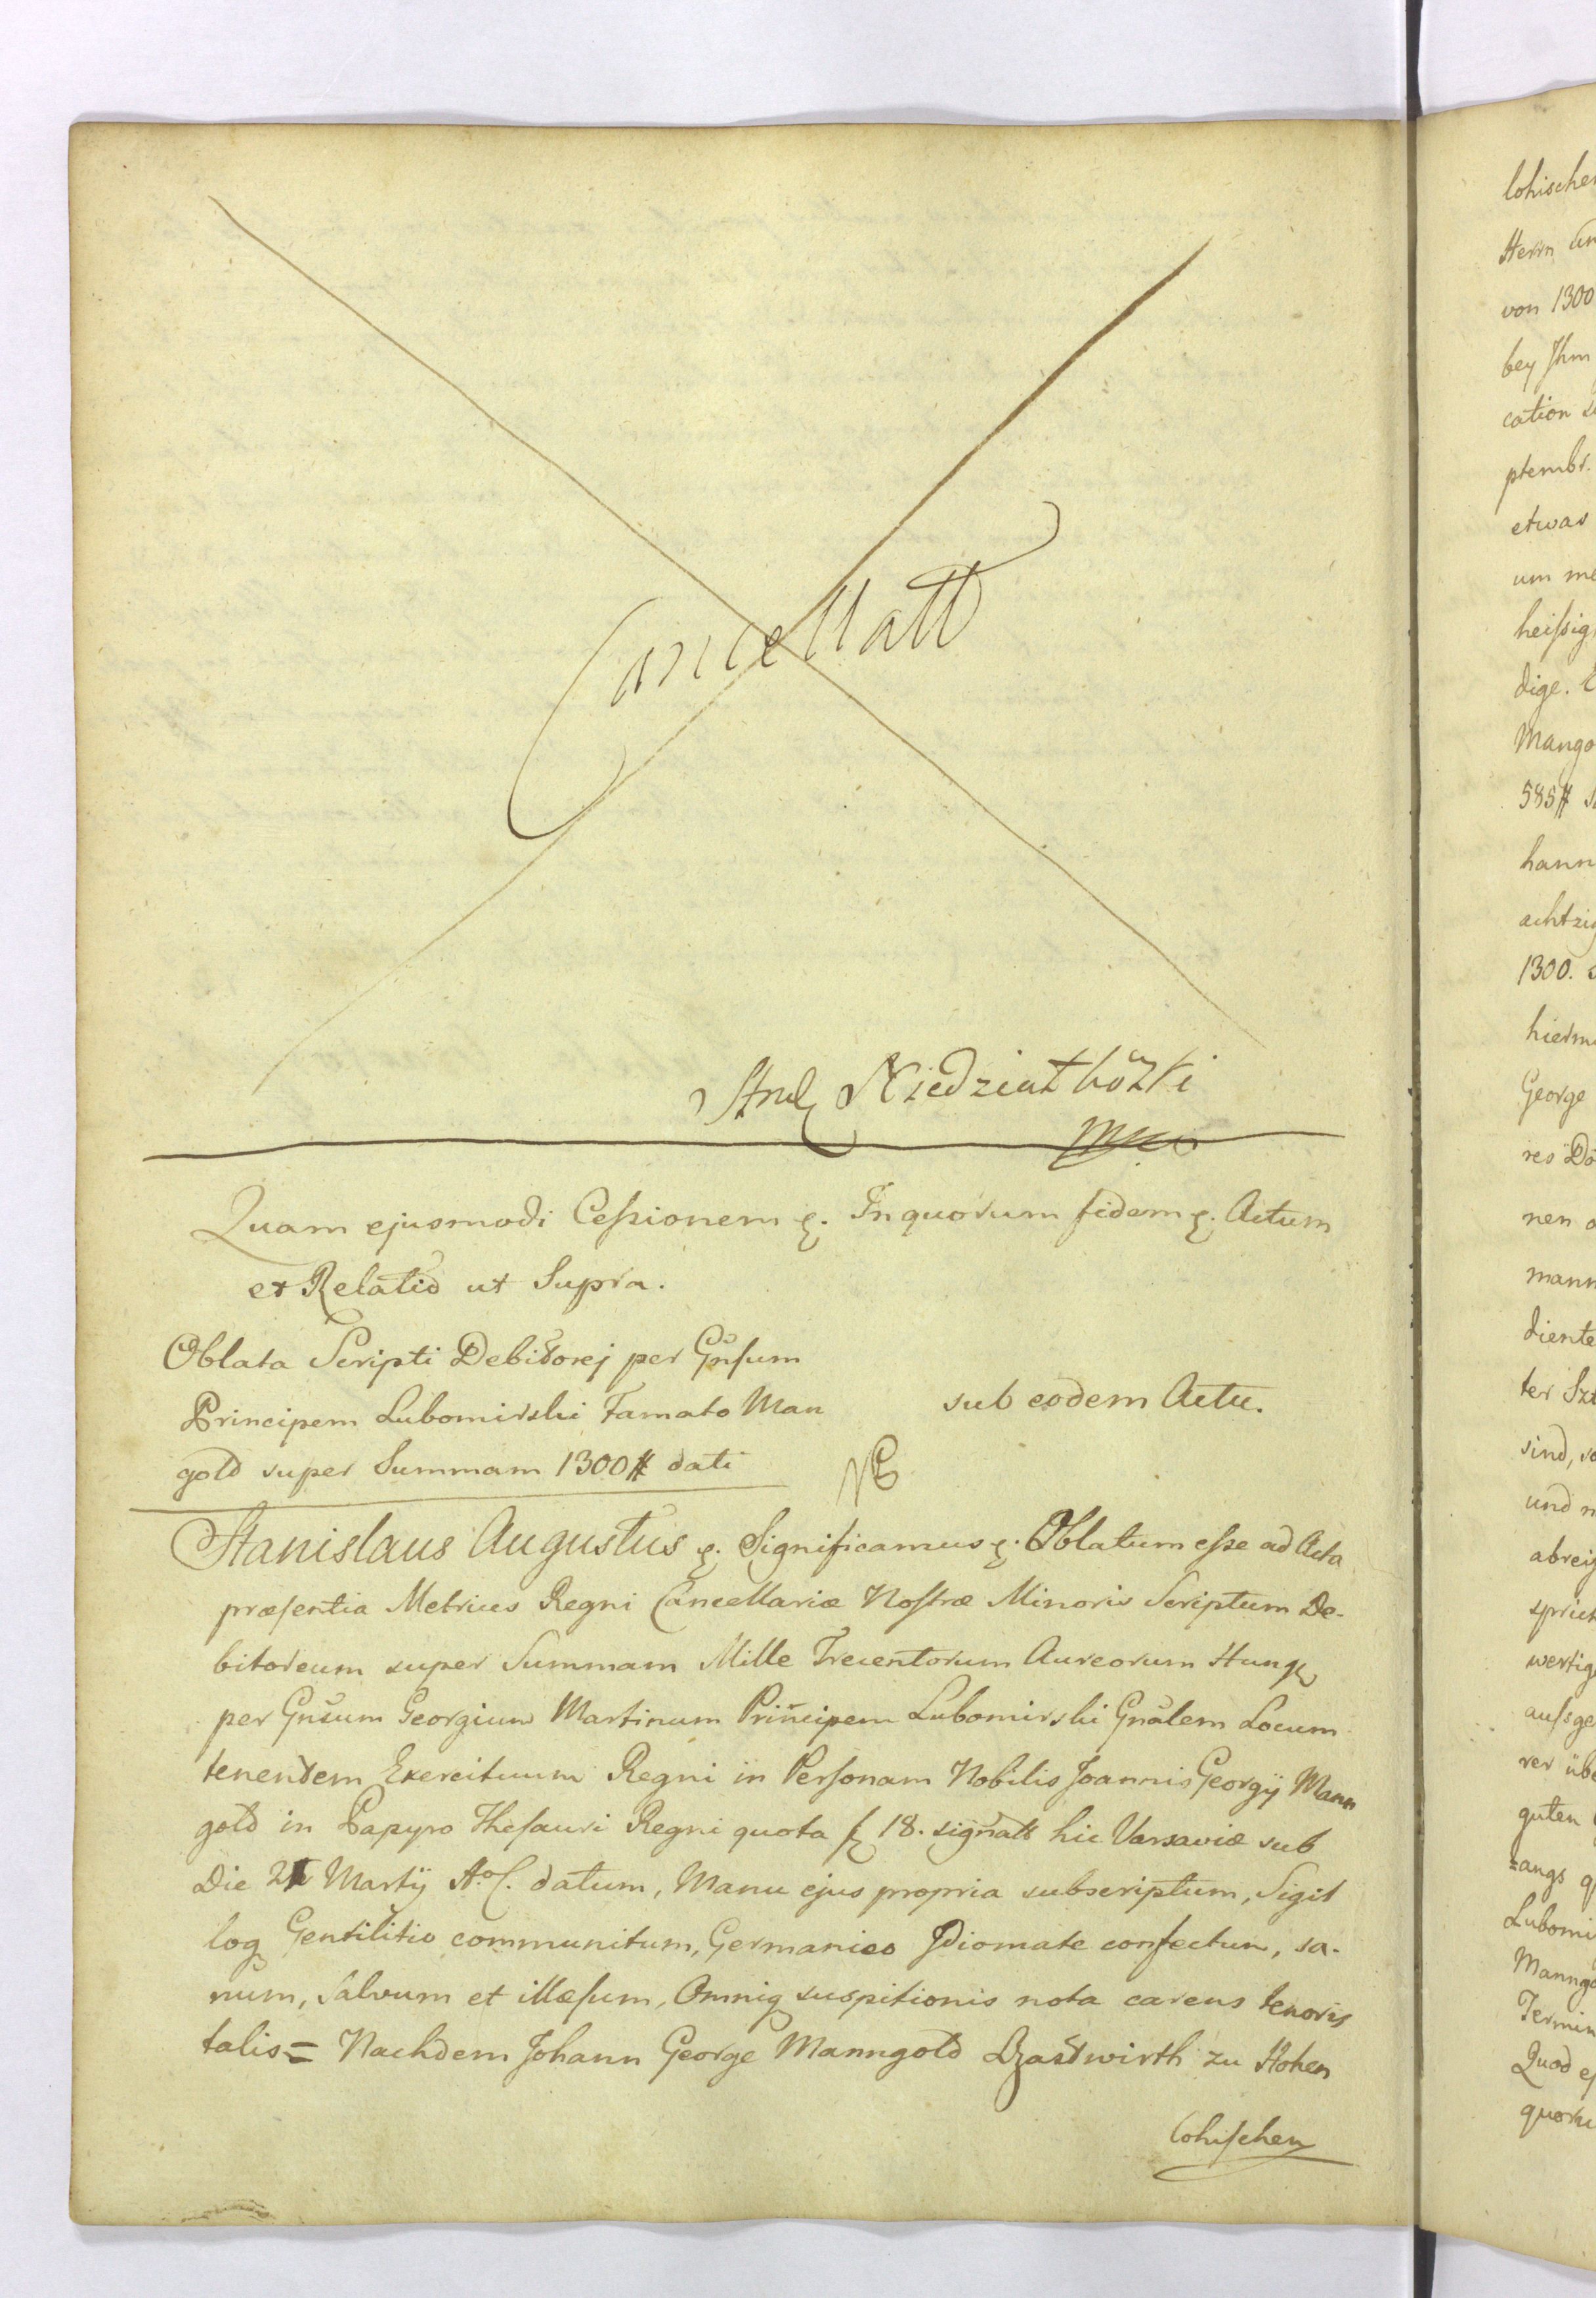 Cancellatt
Niedziałkowski
mpp
Quam ejusmodi Ceſsionem &. In quorum fidem &. Actum
et Relatio ut Supra.
Oblata Scripti Debitorej per Gñſum
Principem Lubomirski Famato Man
gold super Summam 1300# dati
sub eodem Actu.
Stanislaus Augustus &. Significamus &. Oblatum eſse ad Acta
præſentia Metrices Regni Cancellariæ Noſtræ Minoris Scriptum De-
bitoreum super Summam Mille Trecentorum Aureorum Hung
per Gñsum Georgium Martinum Principem Lubomirski Gñalem Locum
tenentem Exercituum Regni in Perſonam Nobilis Joannis Georgÿ Mann
gold in Papyro Theſauri Regni quota 18. signatt hic Varsaviæ sub
Die Martÿ A. C. datum, Manu ejus propria subscriptum, Sigil
loq Gentilitio communitum, Germanico Jdiomate confectum, sa-
num, Salvum et illæſum, Omniq suspitionis nota carens tenoris
talis = Nachdem Johann George Manngold Gastwirth zu Hohen
lohiſchen
lohischen
Herrn
von 1300
bey Jhm
cation
ptembr.
etwas
um
heiſsig
dige.
Mango
585#
hann
achtzig
1300.
hierm
George
res
nen
mann
diente
ter
sind,
und
abreiſ
wertig
auſsge
rer übe
guten
zangs
Lubomi
Manngo
Termin
Quod
quoru